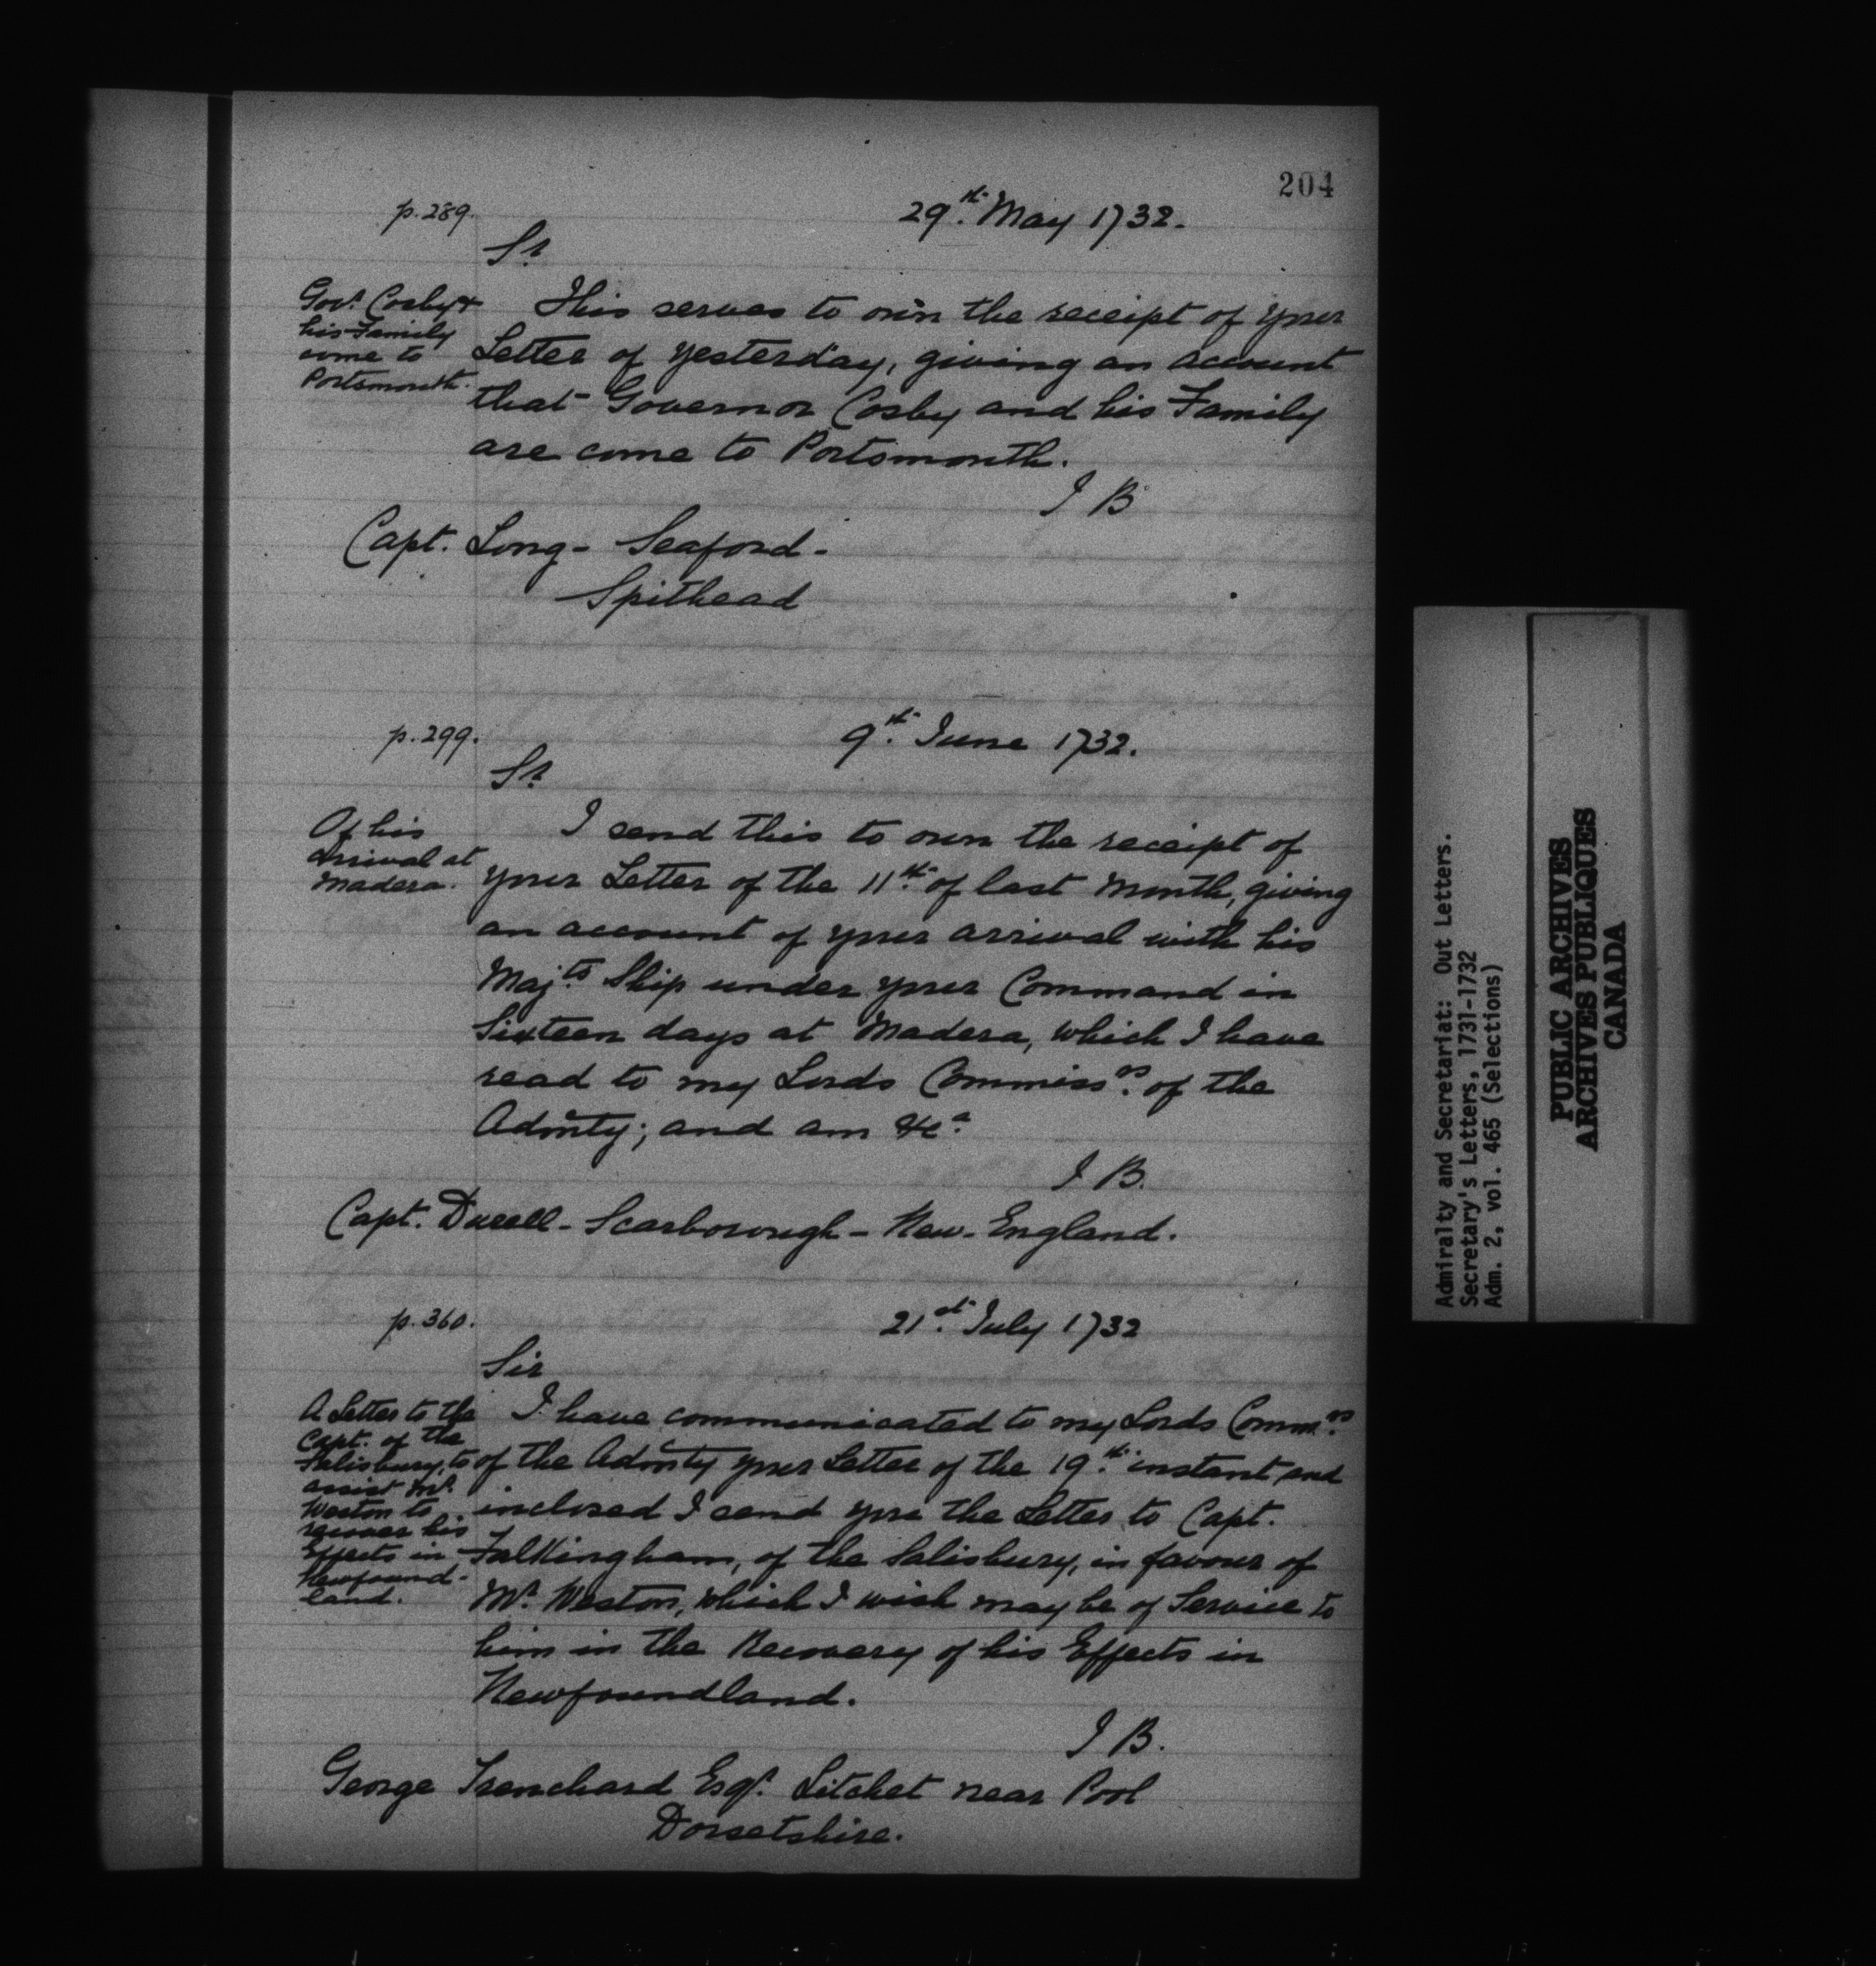 204
p. 289.
29th. May 1732.
Sr.
Govr. Cosby &
his Family
come to
Portsmouth.
This serves to own the receipt of your
Letter of yesterday, giving an account
that Governor Cosby and his Family
are come to Portsmouth.
J B
Capt. Long - Seaford -
Spithead
p. 299.
9th. June 1732.
Sr.
Of his
arrival at
Madera.
I send this to own the receipt of
your Letter of the 11th. of last Month, giving
an account of your arrival with his
Maj.ts Ship under your Command in
Sixteen days at Madera, which I have
read to my Lords Commiss.rs of the
Admty; and am &c.a
J B.
Capt. Durell - Scarborough - New-England.
p. 360.
21st. July 1732
Sir
A Letter to the
Capt. of the
Salisbury, to
assist Mr.
Weston to
recover his
Effects in
Newfound-
land.
I have communicated to my Lords Comm.rs
of the Admty your Letter of the 19th. instant and
inclosed I send you the Letter to Capt.
Falkingham, of the Salisbury, in favour of
Mr. Weston, which I wish may be of Service to
him in the Recovery of his Effects in
Newfoundland.
J B.
George Trenchard Esqr. Litchet near Pool
Dorsetshire.
Admiralty and Secretariat: Out Letters.
Secretary's Letters, 1731-1732
Adm. 2, vol. 465 (Selections)
PUBLIC ARCHIVES
ARCHIVES PUBLIQUES
CANADA